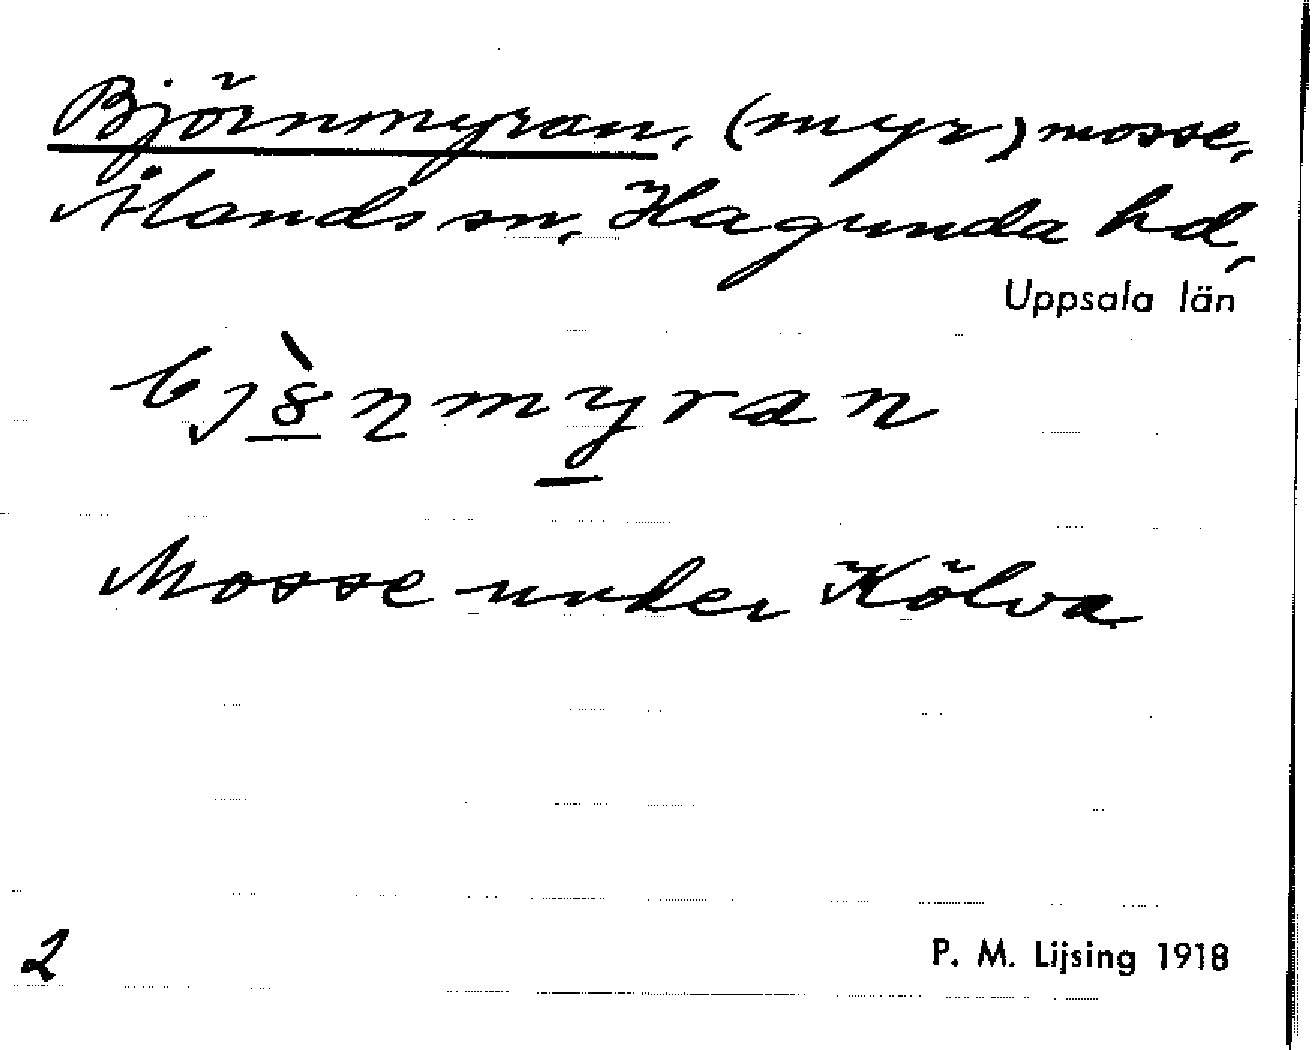 Björnmyran, (myr) mosse,
Ålands sn, Hagunda hd,
Uppsala län
bjö̀ṇmyran
Mosse under Kölva
2
P. M. Lijsing 1918